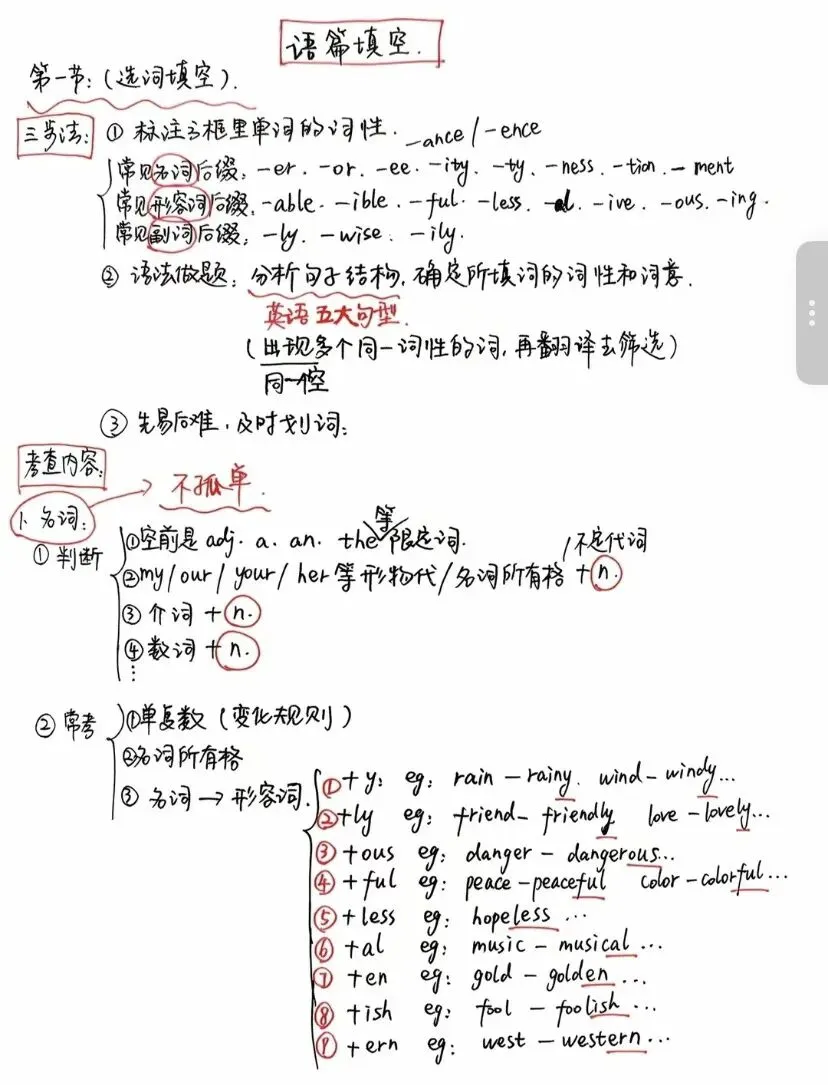 语篇填空.
第一节:(选词填空).
三步法: ① 标注方框里单词的词性. -ance / -ence
常见名词后缀: -er. -or. -ee. -ity. -ty. -ness. -tion. -ment
常见形容词后缀: -able. -ible. -ful. -less. -al. -ive. -ous. -ing.
常见副词后缀: -ly. -wise. -ily.
② 语法做题: 分析句子结构, 确定所填词的词性和词意.
英语五大句型.
(出现多个同一词性的词, 再翻译去筛选)
同一个空
③ 先易后难, 及时划词;
考查内容:
1、名词: 不孤单.
① 判断
①空前是 adj. a. an. the 等限定词.
②my / our / your / her 等形物代 / 名词所有格 / 不定代词 + n.
③ 介词 + n.
④ 数词 + n.
⋮
② 常考 ①单复数 (变化规则)
②名词所有格
③ 名词 → 形容词.
① + y: eg: rain - rainy. wind - windy...
② +ly eg: friend - friendly love - lovely...
③ +ous eg: danger - dangerous...
④ +ful eg: peace - peaceful color - colorful...
⑤ +less eg: hopeless ...
⑥ +al eg: music - musical ...
⑦ +en eg: gold - golden ...
⑧ +ish eg: fool - foolish ...
⑨ +ern eg: west - western...